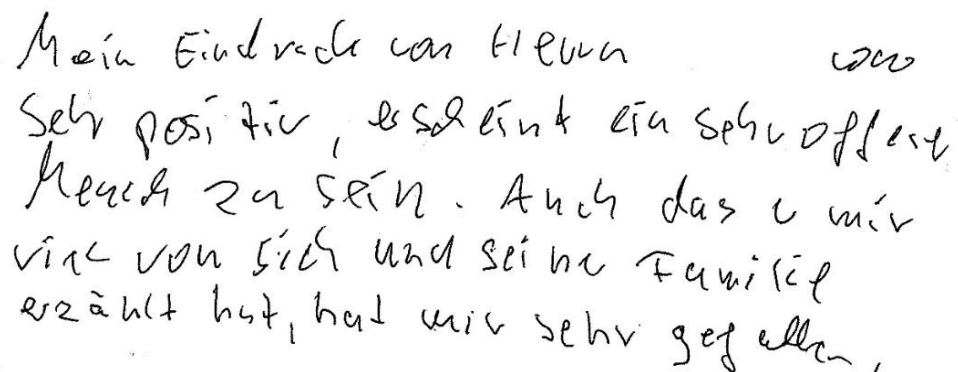 Mein Eindruck von Herrn war
sehr positiv, er scheint ein sehr offener
Mensch zu sein. Auch das er mir
viel von sich und seiner Familie
erzählt hat, hat mir sehr gefallen.